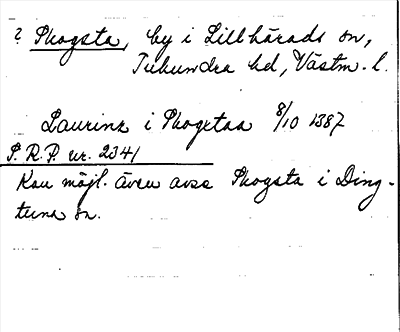 ? Skogsta, by i Lillhärads sn,
Tuhundra hd, Västm. l.
Laurinz i Skogstaa 8/10 1387
S.R.P. nr. 2341
Kan möjl. även avse Skogsta i Ding-
tuna sn.